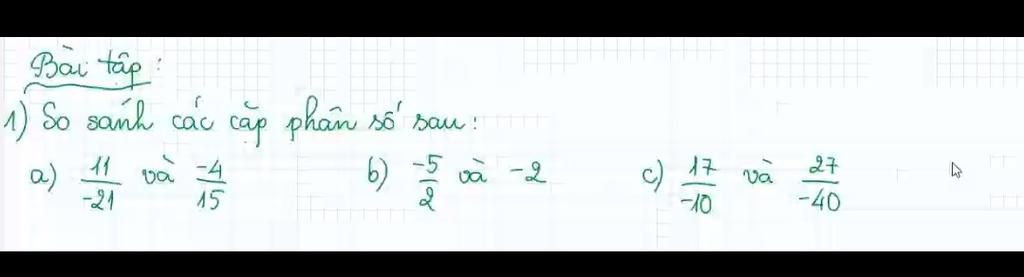 Bài tập:
1) So sánh các cặp phân số sau:
a) 11/-21 và -4/15 b) -5/2 và -2 c) 17/-10 và 27/-40